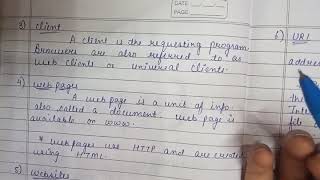 DATE
PAGE
3) client
A client is the requesting program
Browsers are also referred to as
web clients or universal clients.
4) web pages
A web page is a unit of info
also called a document. web page is
available on www.
* web pages use HTTP and are created
using HTML.
5) websites
6) URL
address
the
file